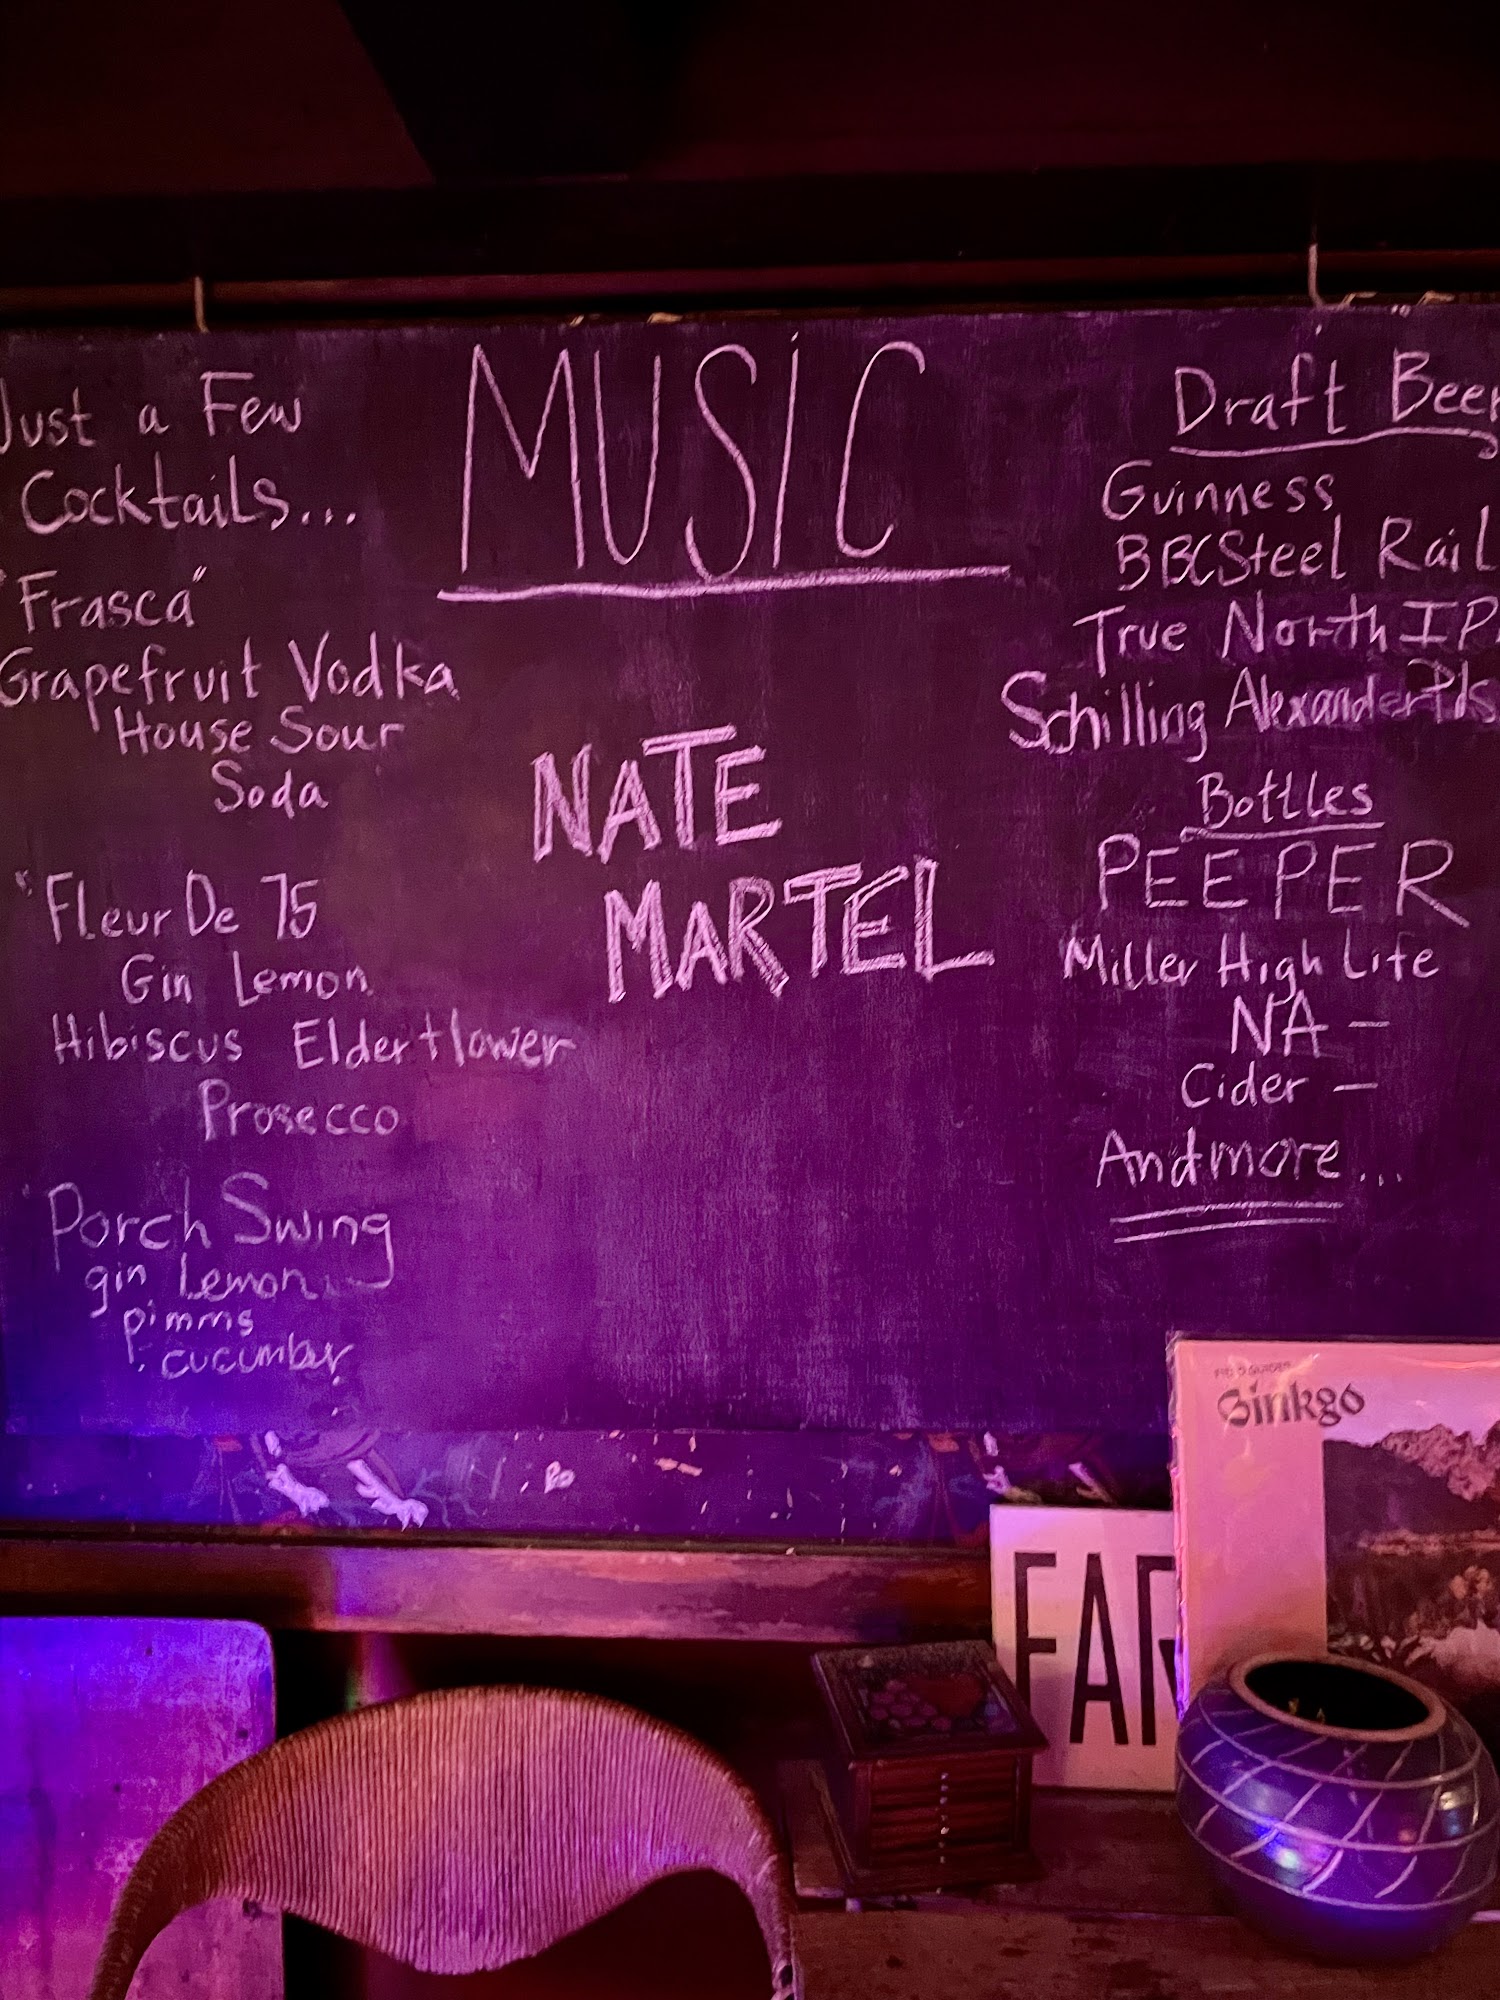 Just a Few
Cocktails...
"Frasca"
Grapefruit Vodka
House Sour
Soda
"Fleur De 75
Gin Lemon
Hibiscus Elderflower
Prosecco
Porch Swing
gin Lemon
pimms
cucumber
MUSiC
NATE
MARTEL
Draft Beer
Guinness
BBC Steel Rail
True North IP
Schilling Alexandr Pils
Bottles
PEEPER
Miller High Life
NA -
Cider -
And more...
FIELD GUIDES
Ginkgo
FAR